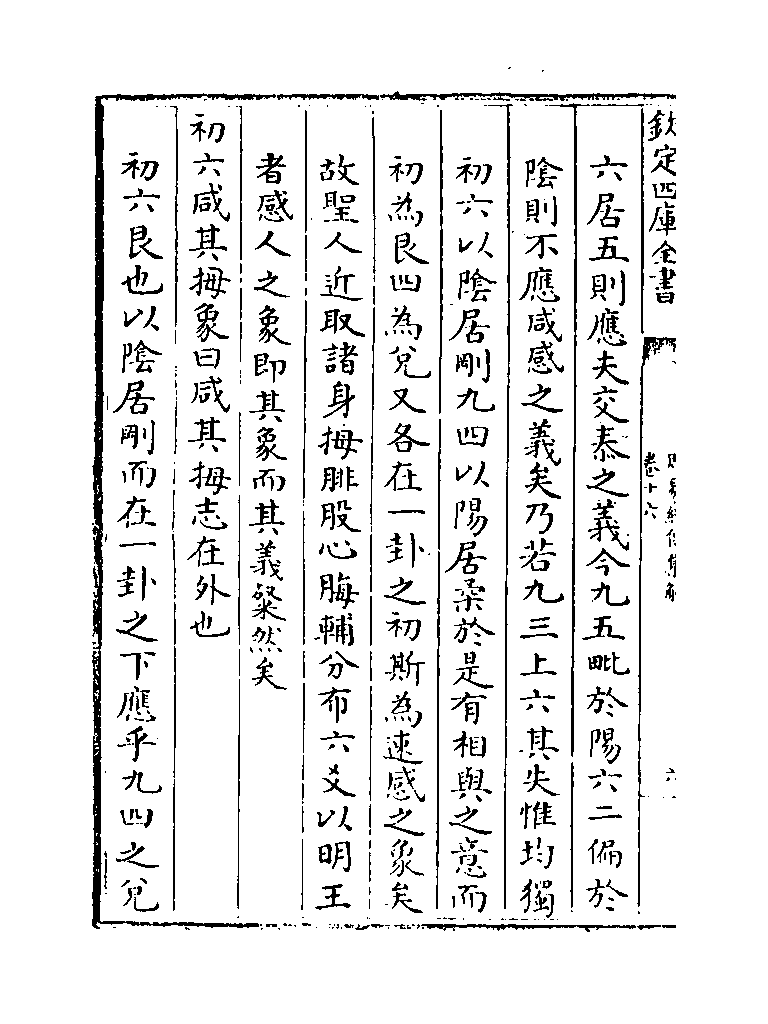 欽定四庫全書
卷十六
六
六居五則應夫交泰之義今九五毗於陽六二偏於
陰則不應咸感之義矣乃若九三上六其失惟均獨
初六以陰居剛九四以陽居柔於是有相與之意而
初為艮四為兌又各在一卦之初斯為速感之象矣
故聖人近取諸身拇腓股心脢輔分布六爻以明王
者感人之象即其象而其義粲然矣
初六咸其拇象曰咸其拇志在外也
初六艮也以陰居剛而在一卦之下應乎九四之兌